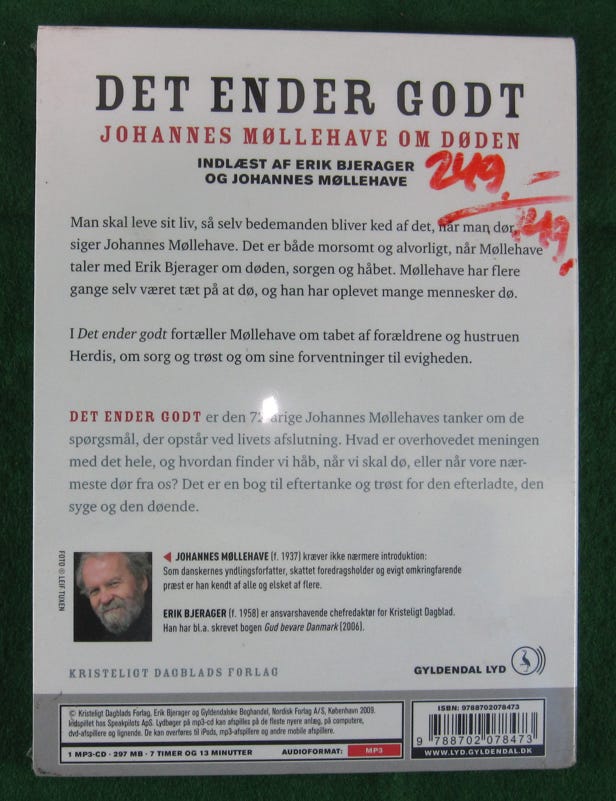 DET ENDER GODT
JOHANNES MØLLEHAVE OM DØDEN
INDLÆST AF ERIK BJERAGER
OG JOHANNES MØLLEHAVE
249,-
149,
Man skal leve sit liv, så selv bedemanden bliver ked af det, når man dør,
siger Johannes Møllehave. Det er både morsomt og alvorligt, når Møllehave
taler med Erik Bjerager om døden, sorgen og håbet. Møllehave har flere
gange selv været tæt på at dø, og han har oplevet mange mennesker dø.
I Det ender godt fortæller Møllehave om tabet af forældrene og hustruen
Herdis, om sorg og trøst og om sine forventninger til evigheden.
DET ENDER GODT er den årige Johannes Møllehaves tanker om de
spørgsmål, der opstår ved livets afslutning. Hvad er overhovedet meningen
med det hele, og hvordan finder vi håb, når vi skal dø, eller når vore nær-
meste dør fra os? Det er en bog til eftertanke og trøst for den efterladte, den
syge og den døende.
FOTO © LEIF TUXEN
JOHANNES MØLLEHAVE (f. 1937) kræver ikke nærmere introduktion:
Som danskernes yndlingsforfatter, skattet foredragsholder og evigt omkringfarende
præst er han kendt af alle og elsket af flere.
ERIK BJERAGER (f. 1958) er ansvarshavende chefredaktør for Kristeligt Dagblad.
Han har bl.a. skrevet bogen Gud bevare Danmark (2006).
KRISTELIGT DAGBLADS FORLAG
GYLDENDAL LYD
© Kristeligt Dagblads Forlag, Erik Bjerager og Gyldendalske Boghandel, Nordisk Forlag A/S, København 2009.
Indspillet hos Speakpilots ApS. Lydbøger på mp3-cd kan afspilles på de fleste nyere anlæg, på computere,
dvd-afspillere og lignende. De kan overføres til iPods, mp3-afspillere og andre mobile afspillere.
1 MP3-CD · 297 MB · 7 TIMER OG 13 MINUTTER AUDIOFORMAT: MP3
ISBN: 9788702078473
9 788702 078473
WWW.LYD.GYLDENDAL.DK